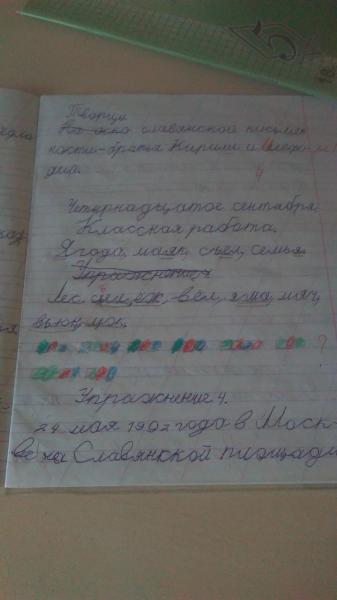 Творци
Аз око славянской письмен
ности-братья Кирилл и Мефо-
дий.
4
Четернадцатое сентября.
Классная работа.
Ягода, маяк, съел, семья
Упражнение
Лес, ёж, вёл, яма, мяч,
вьюн, 
?
Упражнение 4.
24 мая 1992 года в Моск-
ве на Славянской площади